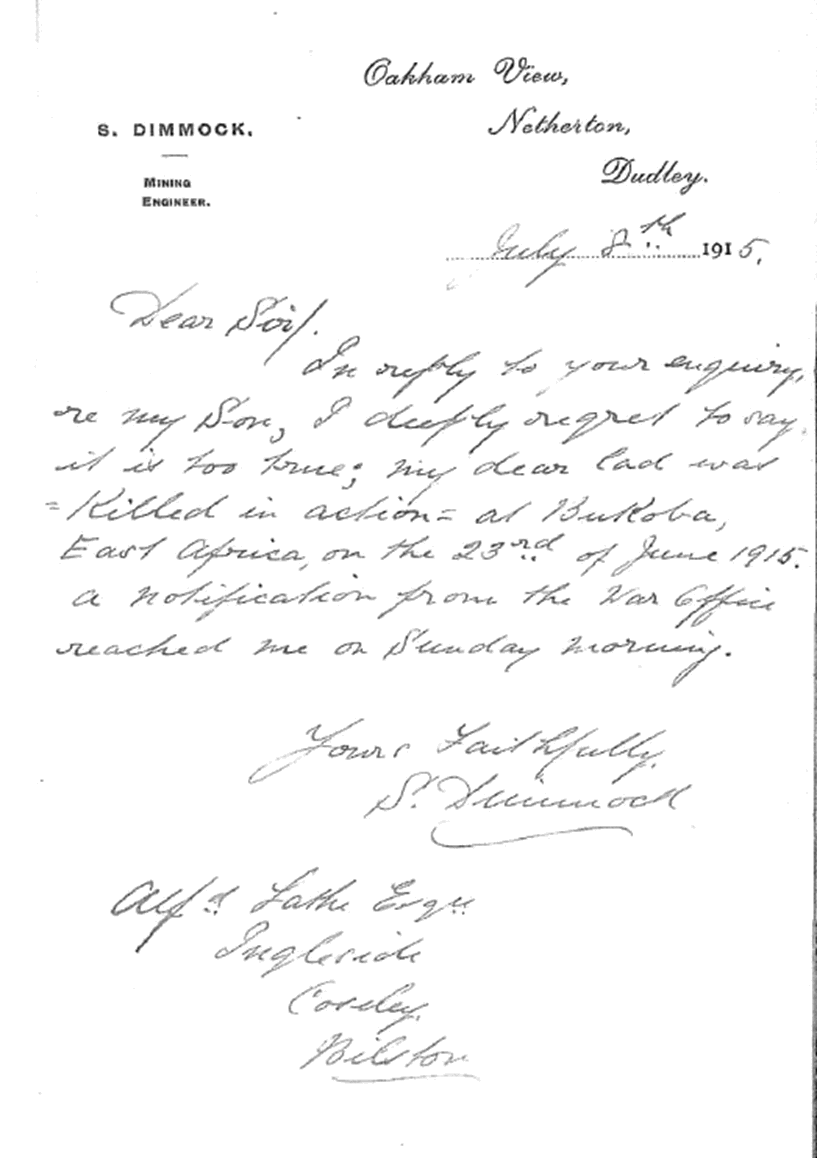 Oakham View,
S. DIMMOCK.
Netherton,
MINING
ENGINEER.
Dudley.
July 8th 1915.
Dear Sir/.
In reply to your enquiry,
re my Son, I deeply regret to say
it is too true; my dear lad was
=Killed in action= at Bukoba,
East Africa, on the 23rd of June 1915.
a notification from the War Office
reached me on Sunday morning.
Yours Faithfully.
S. Dimmock
Alfd Esqre
Ingleside
Coseley.
Bilston